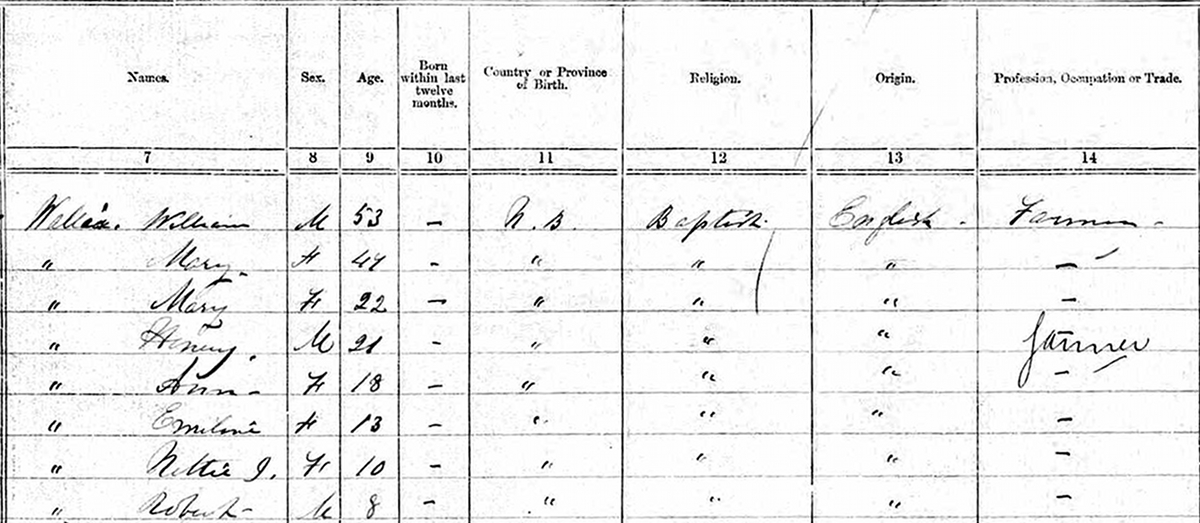 Names. Sex. Age. Born within last twelve months. Country or Province of Birth. Religion. Origin. Profession, Occupation or Trade.
7 8 9 10 11 12 13 14
William M 53 – N.B. Baptist English Farmer –
" Mary F – " " " –
" Mary F 22 – " " " –
" Henery M 21 – " " " farmer
" Ann F 18 – " " " –
" F 13 – " " " –
" Nettie J. F 10 – " " " –
" Robert M 8 – " " " –